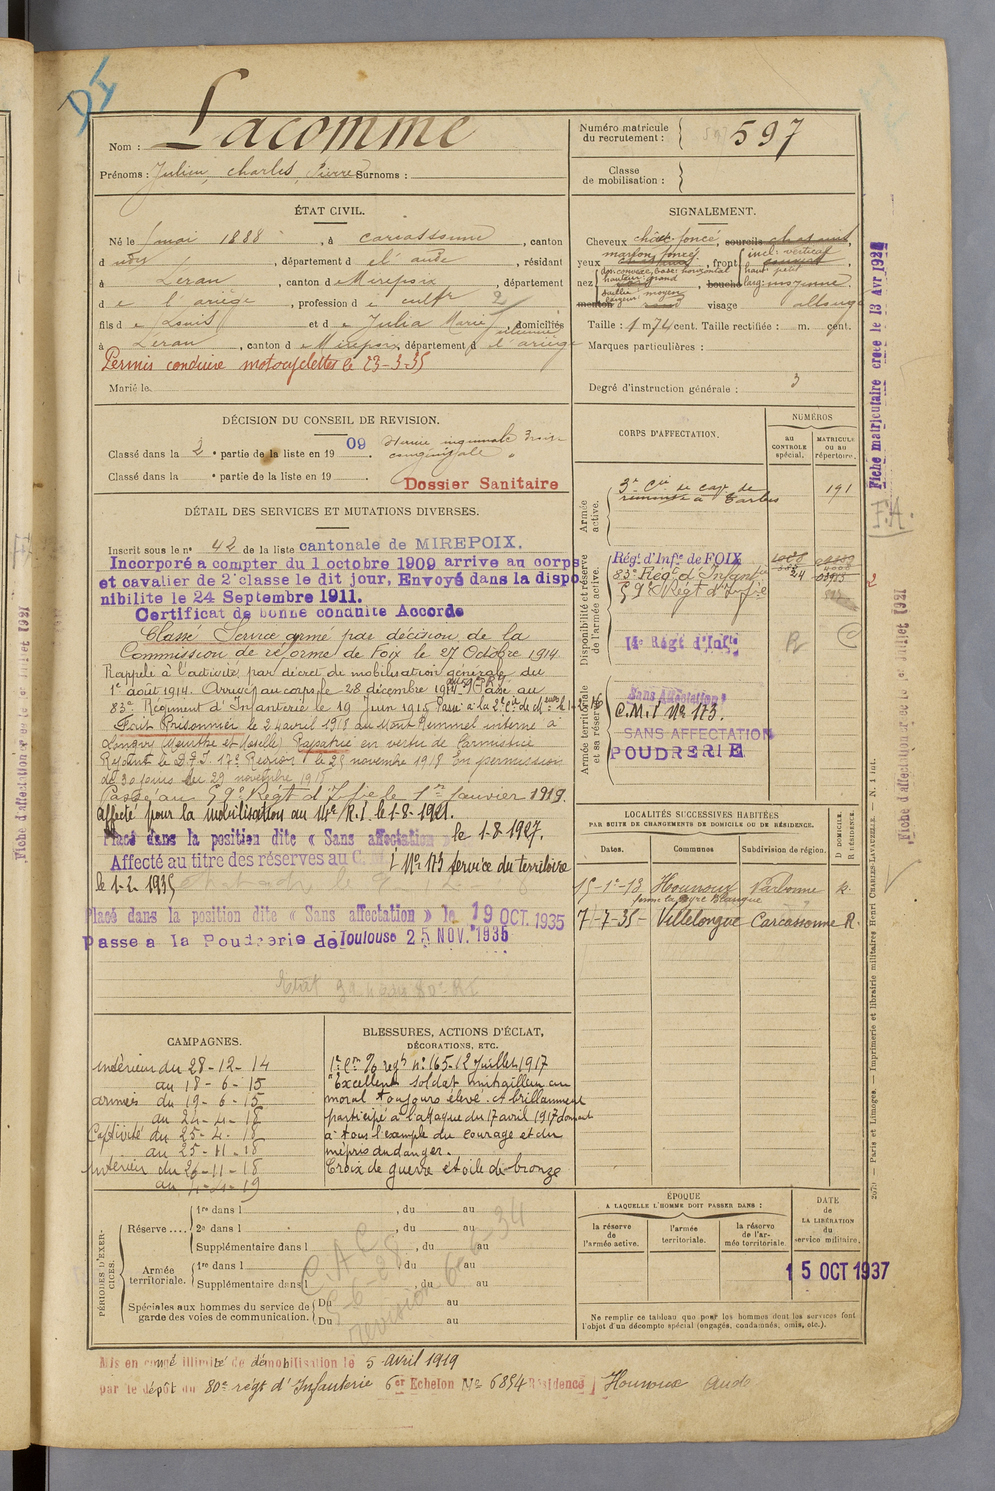 DI
Nom : Lacomme
Prénoms : Julien, Charles, Pierre Surnoms :
Numéro matricule du recrutement : 597
Classe de mobilisation :
ÉTAT CIVIL.
Né le mai 1888, à Carcassonne, canton
d udit, département d el' aude, résidant
à Leran, canton de Mirepoix, département
d e l'ariège, profession de cultr 2
fils de Louis et de Julia Marie, domiciliés
à Leran, canton d e Mirepoix, département d e l'ariège
Permis conduire motocyclettes le 23-3-35
Marié le
SIGNALEMENT.
Cheveux chât foncé, sourcils
yeux marron foncé, front incl: vertical
haut: petit
larg: moyenne
nez dos convexe, base: horizontal
hauteur: grand
saillie: moyen
largeur:
menton visage allongé
Taille : 1 m 74 cent. Taille rectifiée : m. cent.
Marques particulières :
Degré d'instruction générale : 3
DÉCISION DU CONSEIL DE REVISION.
Classé dans la 2 e partie de la liste en 19 09 Hernie inguinale
Classé dans la e partie de la liste en 19
Dossier Sanitaire
CORPS D'AFFECTATION.
NUMÉROS
AU CONTROLE spécial.
MATRICULE OU AU répertoire.
Armée active.
3e Cie de cav. de remonte à Tarbes 191
Disponibilité et réserve de l'armée active.
Régt d'Infie de FOIX
83e Régt d'Infanterie
59e Régt d'Infie
14e Régt d'Infie
R
Armée territoriale et sa réserve
Sans Affectation
C.M.I No 173.
SANS AFFECTATION
POUDRERIE
DÉTAIL DES SERVICES ET MUTATIONS DIVERSES.
Inscrit sous le no 42 de la liste cantonale de MIREPOIX.
Incorporé a compter du 1 octobre 1909 arrive au corps
et cavalier de 2e classe le dit jour, Envoyé dans la dispo
nibilite le 24 Septembre 1911.
Certificat de bonne conduite Accordé
Classé Service armé par décision de la
Commission de réforme de Foix le 27 Octobre 1914
Rappelé à l'activité par décret de mobilisation générale du
1er août 1914. Arrivé au corps le 28 décembre 1914. Passé au
83e Régiment d'Infanterie le 19 Juin 1915 Passé à la 2e Cie de
Fait Prisonnier le 24 avril 1918 au Mont Kemmel interné à
Longwy (Meurthe et Moselle) Rapatrié en vertu de l'armistice
Rejoint le D.G.I. 17e Region le 28 novembre 1918 En permission
de 30 jours du 29 novembre 1918
Passé au 59e Régt d'Infie le 1er Janvier 1919.
Affecté pour la mobilisation au 14e R.I. le 1-8-1921.
Placé dans la position dite « Sans affectation » le 1-8-1927.
Affecté au titre des réserves au C.M.I No 173 Service du territoire
le 1-2-1935
Placé dans la position dite « Sans affectation » le 19 OCT. 1935
Passe a la Poudrerie de Toulouse 25 NOV. 1935
LOCALITÉS SUCCESSIVES HABITÉES
PAR SUITE DE CHANGEMENTS DE DOMICILE OU DE RÉSIDENCE.
Dates. Communes Subdivision de région. D DOMICILE. R RÉSIDENCE.
15-1-13 Hounoux Narbonne R.
7-7-35 Villelongue Carcassonne R.
CAMPAGNES.
Intérieur du 28-12-14
au 18-6-15
armées du 19-6-15
au 24-4-18
Captivité du 25-4-18
au 25-11-18
Intérieur du 26-11-18
au 4-4-19
BLESSURES, ACTIONS D'ÉCLAT,
DÉCORATIONS, ETC.
No 165-12 Juillet 1917
"Excellent soldat mitrailleur au
moral toujours élevé. A brillamment
participé à l'attaque du 17 avril 1917 donnant
à tous l'exemple du courage et du
mépris du danger.
Croix de guerre étoile de bronze
PÉRIODES D'EXERCICES.
Réserve
1re dans l , du au
2e dans l , du au
Supplémentaire dans l , du au
Armée territoriale.
1re dans l , du au
Supplémentaire dans l , du au
Spéciales aux hommes du service de garde des voies de communication.
Du au
Du au
ÉPOQUE
A LAQUELLE L'HOMME DOIT PASSER DANS :
la réserve de l'armée active.
l'armée territoriale.
la réserve de l'armée territoriale
DATE DE LA LIBÉRATION du service militaire.
15 OCT 1937
Ne remplir ce tableau que pour les hommes dont les services font
l'objet d'un décompte spécial (engagés, condamnés, omis, etc.).
Mis en congé illimité de démobilisation le 5 avril 1919
par le dépôt du 80e régt d'Infanterie 6er Echelon No 6854 Résidence Hounoux Aude
Fiche matriculaire créée le 13 Avr 1921
F.A.
Fiche d'affectation créée le Juillet 1921
2670 — Paris et Limoges. — Imprimerie et librairie militaires Henri CHARLES-LAVAUZELLE. — N. 1 int.